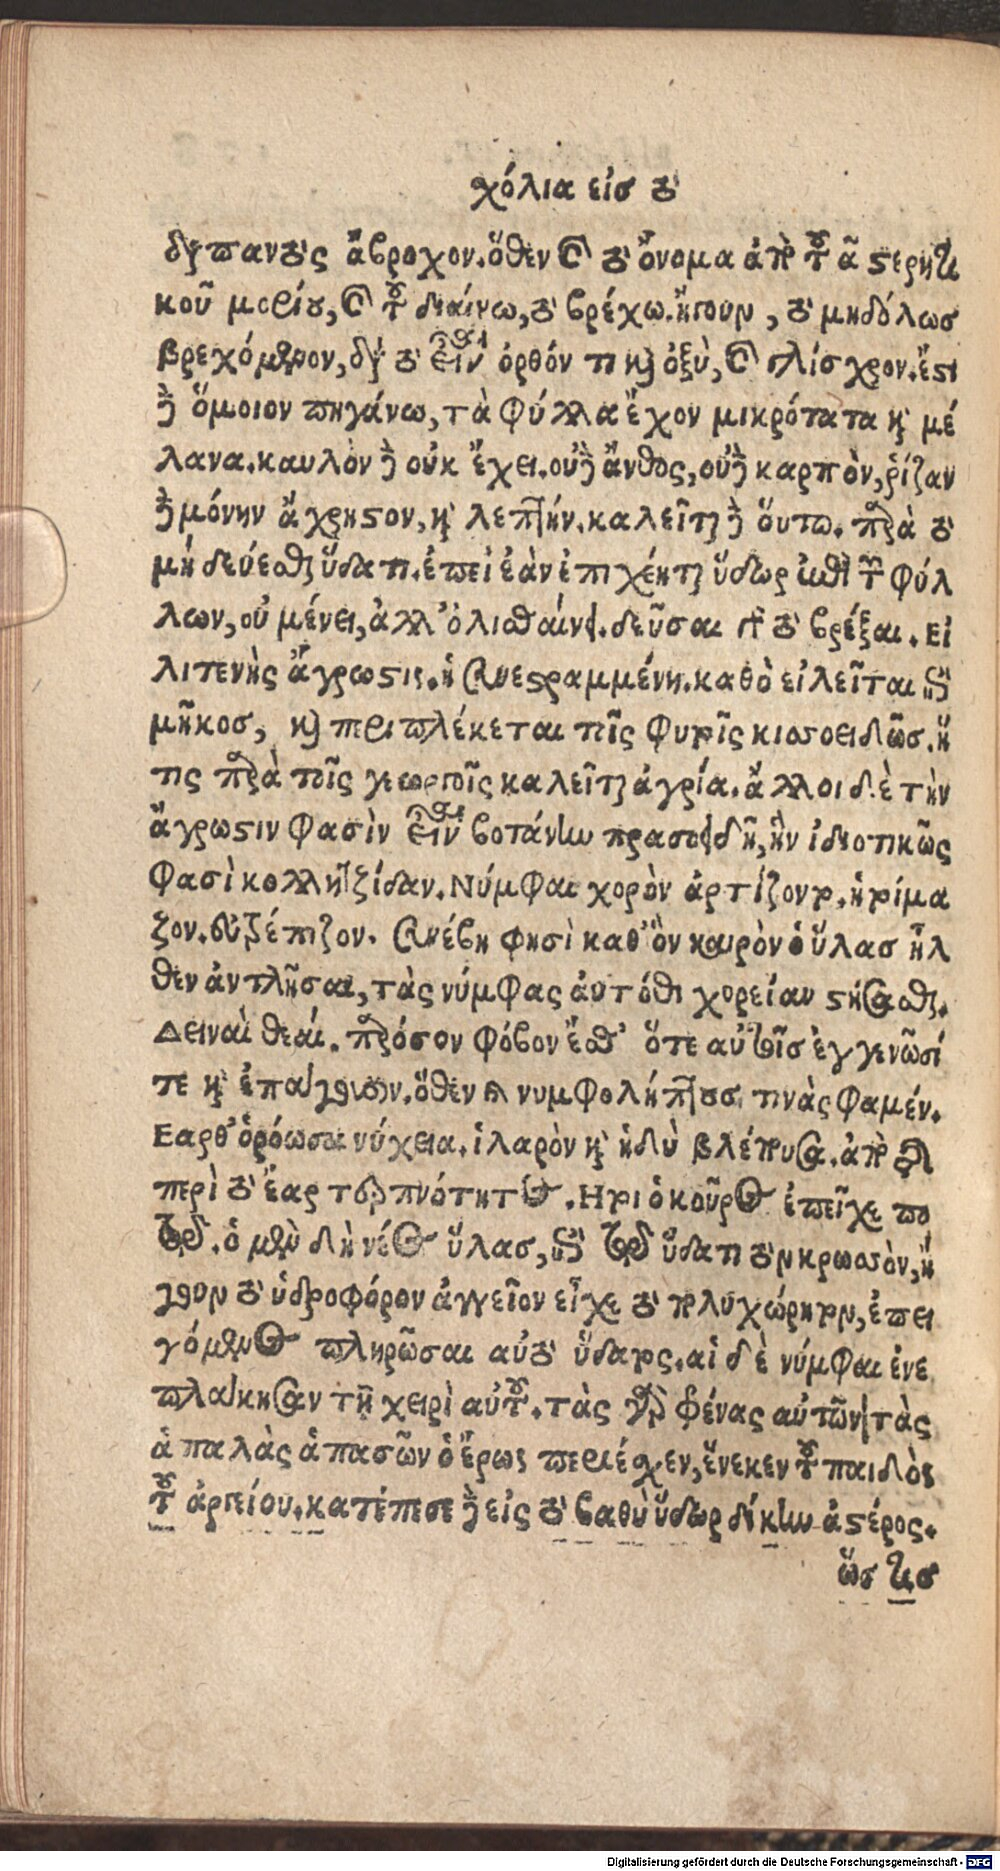 χόλια εἰς τὸ
διαπαντὸς ἄβροχον. ὅθεν καὶ τὸ ὄνομα ἀπὸ τοῦ ᾱ στερητι
κοῦ μορίου, καὶ τοῦ διαίνω, τὸ βρέχω. ἤγουν, τὸ μηδόλως
βρεχόμενον, διὰ τὸ εἶναι ὀρθόν τι καὶ ὀξὺ, καὶ γλίσχρον. ἔστι
δὲ ὅμοιον πηγάνω, τὰ φύλλα ἔχον μικρότατα καὶ μέ
λανα. καυλὸν δὲ οὐκ ἔχει. οὐδὲ ἄνθος, οὐδὲ καρπὸν, ῥίζαν
δὲ μόνην ἄχρηστον, καὶ λεπτήν. καλεῖται δὲ ὅυτω. παρὰ τὸ
μὴ δεύεσθαι ὕδατι. ἐπεὶ ἐὰν ἐπιχέηται ὕδωρ ἐπὶ τῶν φύλ
λων, οὐ μένει, ἀλλ' ὀλισθαίνει. δεῦσαι γὰρ τὸ βρέξαι. Εἰ
λιτενὴς ἄγρωστις. ἡ συνεστραμμένη. καθὸ εἰλεῖται εἰς
μῆκος, καὶ περιπλέκεται τοῖς φυτοῖς κισσοειδῶς. ἥ
τις παρὰ τοῖς γεωργοῖς καλεῖται ἀγρία. ἄλλοι δὲ τὴν
ἄγρωστιν φασὶν εἶναι βοτάνην πρασοειδῆ, ἣν ἰδιοτικῶς
φασὶ κολλητζίδαν. Νύμφαι χορὸν ἀρτίζοντο. ἡτοίμα
ζον. εὐτρέπιζον. συνέβη φησὶ καθ' ὃν καιρὸν ὁ ὕλας ἦλ
θεν ἀντλῆσαι, τὰς νύμφας ἀυτόθι χορείαν στήσασθαι.
Δειναὶ θεαί. παρόσον φόβον ἔσθ' ὅτε αὐταῖς ἐγγενῶσί
τε καὶ ἐπάγουσιν. ὅθεν καὶ νυμφολήπτους τινὰς φαμέν.
Εαρθ' ὁρόωσα νύχεια. ἱλαρὸν καὶ ἡδὺ βλέπουσα. ἀπὸ τῆς
περὶ τὸ ἔαρ τερπνότητος. Ητοι ὁ κοῦρος ἐπεῖχε πο
τῷ. ὁ μὲν δὴ νέος ὕλας, εἰς τῷ ὕδατι τὸν κρωσσὸν, ἤ
γουν τὸ ὑδροφόρον ἀγγεῖον εἶχε τὸ πολυχώρητον, ἐπει
γόμενος πληρῶσαι αὐτὸ ὕδατος. αἱ δὲ νύμφαι ἐνε
πλάκησαν τῇ χειρὶ αὐτοῦ. τὰς γὰρ φρένας αὐτῶν τὰς
ἁπαλὰς ἁπασῶν ὁ ἔρως περιέσχεν, ἕνεκεν τοῦ παιδὸς
τοῦ ἀργείου. κατέπεσε δὲ εἰς τὸ βαθὺ ὕδωρ δίκην ἀστέρος.
ὥς τις
Digitalisierung gefördert durch die Deutsche Forschungsgemeinschaft - DFG